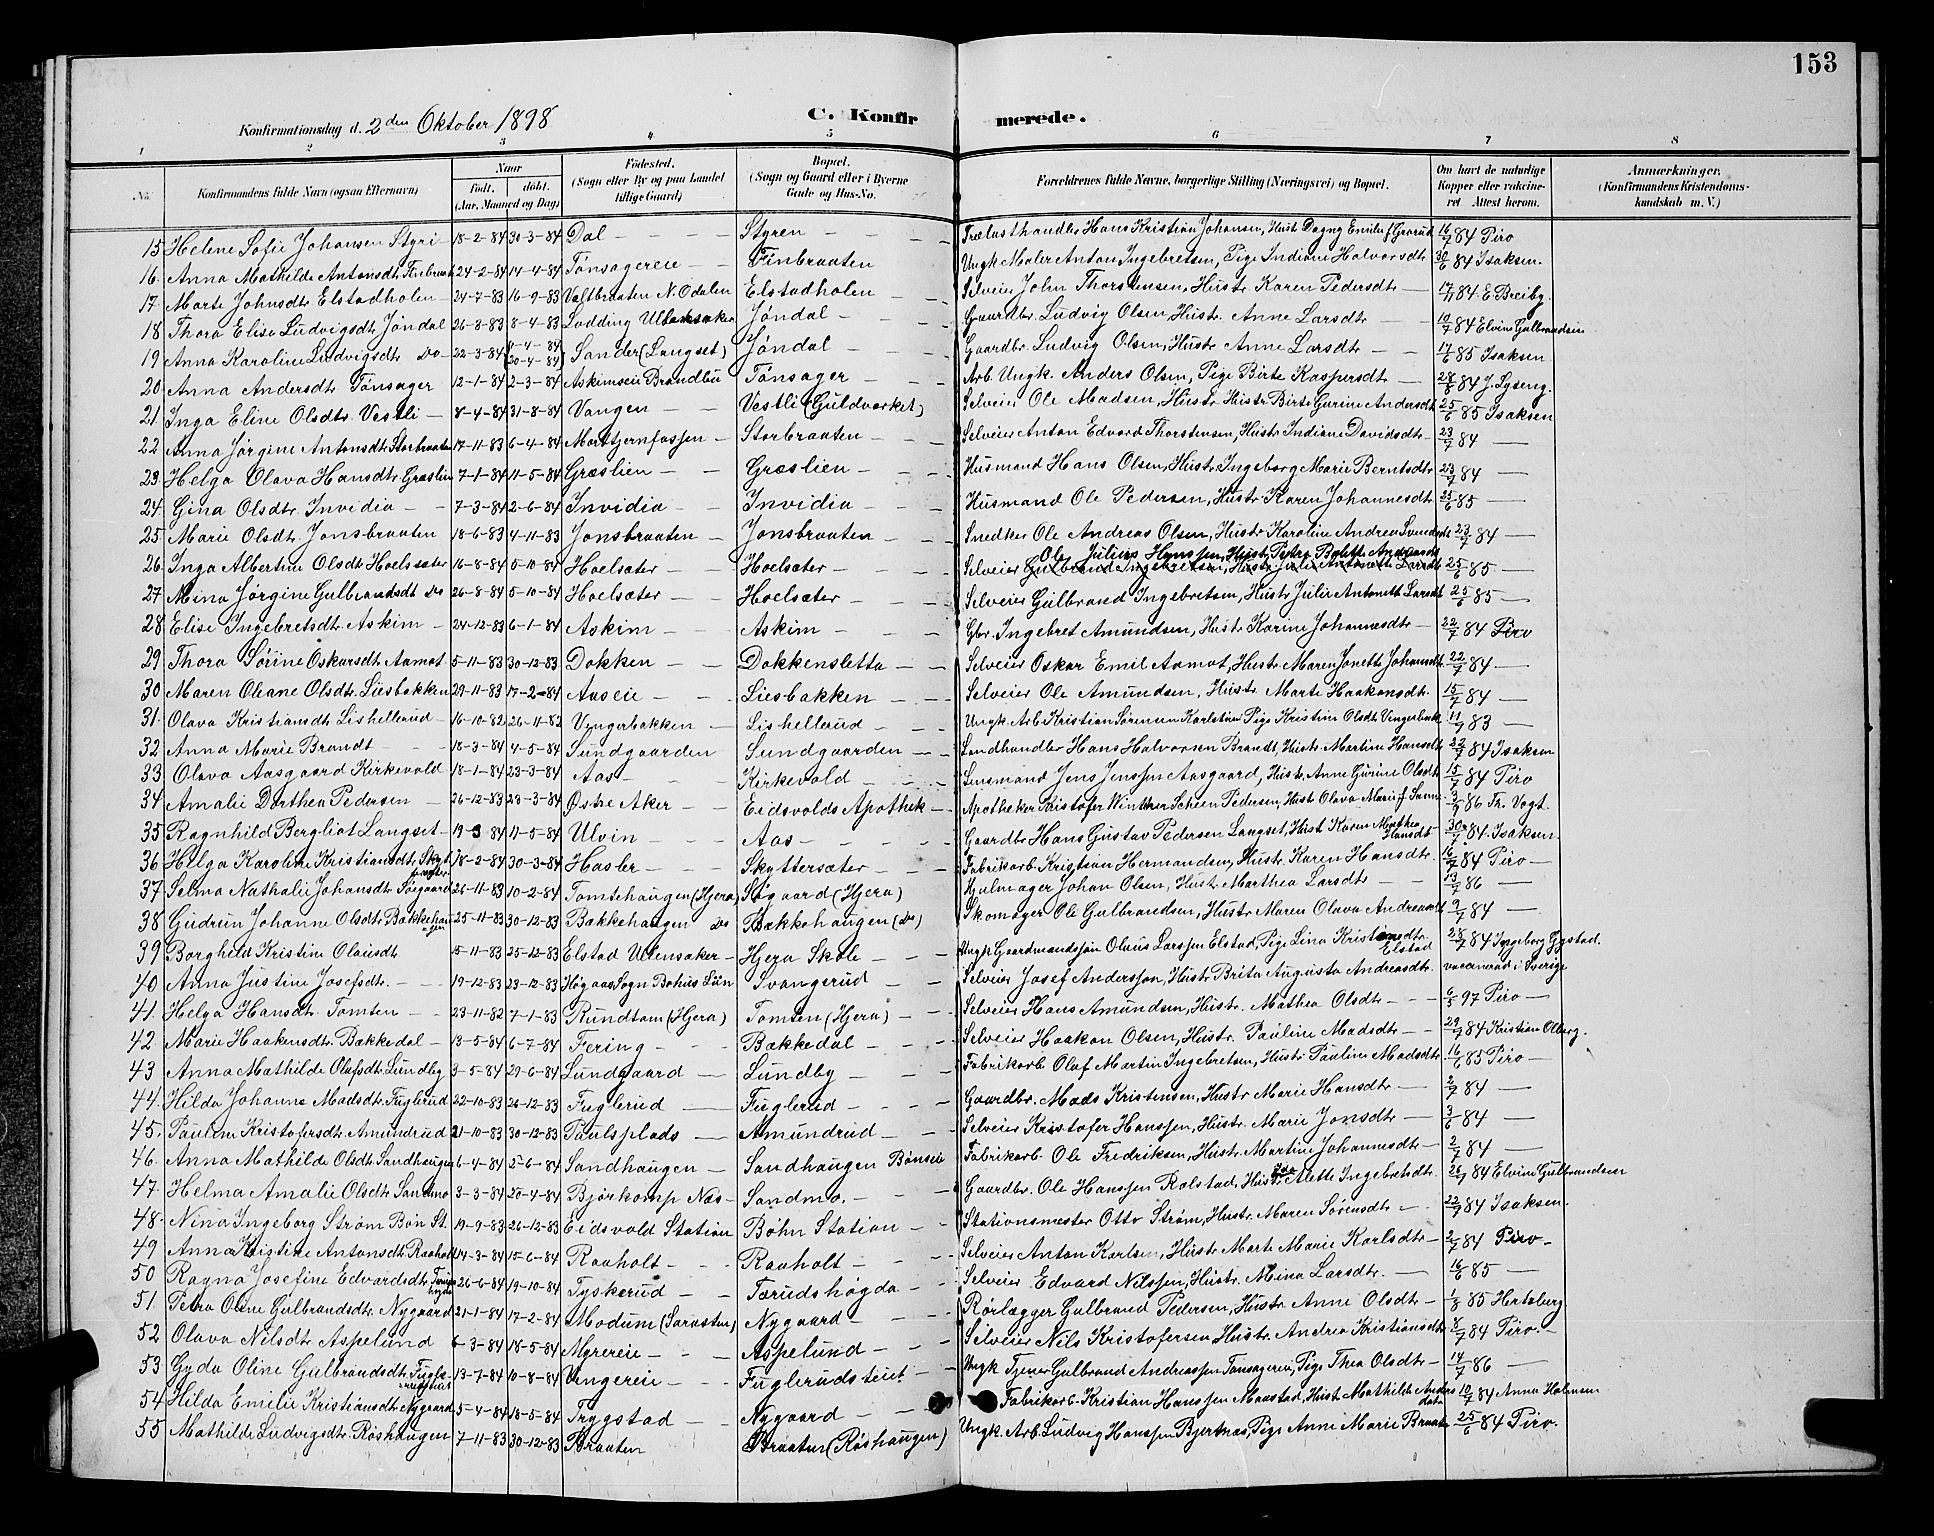 153
Konfirmationsdag d. 2den Oktober 1898 C. Konfirmerede.
1 2 3 4 5 6 7 8
No. Konfirmandens fulde Navn (ogsaa Efternavn) Naar født. døbt. (Aar, Maaned og Dag) Fødested. (Sogn eller By og paa Landet tillige Gaard) Bopæl. (Sogn og Gaard eller i Byerne Gade og Hus-No. Forældrenes fulde Navne, borgerlige Stilling (Næringsvei) og Bopæl. Om havt de naturlige Kopper eller vakcineret Attest herom. Anmærkninger. (Konfirmandens Kristendomskundskab m. V.)
15 Helene Sofie Johansen Styri 18-2-84 30-3-84 Dal Styren Trælasthandler Hans Kristian Johansen, Hust. Dagny Emilie f. Grorud 16/7 84 Piro
16 Anna Mathilde Antonsdt. Finbraat 24-2-84 14-4-84 Tønsagereie Finbraaten Ungk. Maler Anton Ingebretsen, Pige Indiane Halvorsdt 30/6 84 Isaksen
17 Marte Johnsdt. Elstadholen 24-7-83 16-9-83 Valtbraaten N. Odalen Elstadholen Selveier John Thorstensen, Hustr. Karen Pedersdtr 17/11 84 E Breiby
18 Thora Elise Ludvigsdt. Jøndal 26-3-83 8-4-83 Lodding Ullensaker Jøndal Gaardbr. Ludvig Olsen, Hustr. Anne Larsdtr 10/7 84 Elvine Gulbrandsen
19 Anna Karoline Ludvigsdt. Do 22-3-84 20-4-84 Sander (Langset) Jøndal Gaardbr. Ludvig Olsen, Hustr. Anne Larsdtr 17/6 85 Isaksen
20 Anna Andersdt. Tønsager 12-1-84 2-3-84 Askimeie Brandbu Tønsager Arb. Ungk. Anders Olsen, Pige Birte Kaspersdt 28/8 84 J. Lyseng
21 Inga Eline Olsdtr. Vestli 8-4-84 31-8-84 Vangen Vestli (Guldverket) Selveier Ole Madsen, Hustr. Hustr. Birte Gurine Andersdt 25/6 85 Isaksen
22 Anna Jørgine Antonsdt. Storbraaten 17-11-83 6-4-84 Mortjernfossen Storbraaten Selveier Anton Edvard Thorstensen, Hustr. Indiane Davidsdtr 23/7 84 —
23 Helga Olava Hansdt. Græslien 7-1-84 11-5-84 Græslien Græslien Husmand Hans Olsen, Hustr. Ingeborg Marie Berntsdtr 23/7 84 —
24 Gina Olsdtr. Invidia 7-3-84 2-6-84 Invidia Invidia Husmand Ole Pedersen, Hustr. Karen Johannesdt 25/6 85 —
25 Marie Olsdt. Jonsbraaten 18-6-83 4-11-83 Jonsbraaten Jonsbraaten Snedker Ole Andreas Olsen, Hustr. Karoline Andrea Svendsdt 23/7 84 —
26 Inga Albertine Olsdt. Hoelsæter 16-8-84 5-10-84 Hoelsæter Hoelsæter Selveier Ole Julius Hanssen, Hustr. Petra 25/6 85 —
27 Mina Jørgine Gulbrandsdt Do 26-8-84 5-10-84 Hoelsæter Hoelsæter Selveier Gulbrand Ingebretsen, Hustr. Julie Antonette Larsdt 25/6 85 —
28 Elise Ingebretsdt. Askim 24-12-83 6-1-84 Askim Askim Gbr. Ingebret Amundsen, Hustr. Karine Johannesdtr 22/7 84 Piro
29 Thora Sørine Oskarsdt. Aamot 5-11-83 30-12-83 Dokken Dokkensletta Selveier Oskar Emil Aamot, Hustr. Maren Jonette Johansdt. 22/7 84 —
30 Maren Oleane Olsdt. Liesbakken 29-11-83 17-2-84 Aaseie Liesbakken Selveier Ole Amundsen, Hustr. Marte Haakonsdt. 15/7 84 —
31. Olava Kristiansdt Lishellerud 16-10-82 26-11-82 Vyngerbakken Lishellerud Ungk. Arb. Kristian Sørensen Karlstuen Pige Kristine Olsdt. Vingerbak 11/9 83 —
32 Anna Marie Brandt 18-3-84 4-5-84 Sundgaarden Sundgaarden Landhandler Hans Halvorsen Brandt, Hustr. Martine Hansdt. 22/7 84 Isaksen
33 Olava Aasgaard Kirkevold 18-1-84 23-3-84 Aas Kirkevold Lensmand Jens Jenssen Aasgaard, Hustr. Anne Gurine Olsdt. 15/7 84 Piro
34 Amalie Dorthea Pedersen 26-12-83 23-3-84 Østre Aker Eidsvolds Apothek Apotheker Kristofer Winther Scheen Pedersen, Hust. Olava Marie f. 3/9 86 Fr. Vogt.
35 Ragnhild Bergliot Langset 19-3-84 11-5-84 Ulvin Aas Gaardbr. Hans Gustav Pedersen Langset, Hust. Karen Mathea Hansdt 30/7 84 Isaksen
36 Helga Karoline Kristiansdtr. 18-2-84 30-3-84 Hasler Skyttersæter Fabrikarb. Kristian Hermandsen, Hustr. Karen Hansdtr. 16/7 84 Piro
37 Selma Nathalie Johansdt. Søgaard 26-11-83 10-2-84 Tomtehaugen (Hjera) Søgaard (Hjera) Hjulmager Johan Olsen, Hustr. Marthea Larsdtr 13/7 86 —
38 Gudrun Johanne Olsdt. Bakkehaugen 25-11-83 30-12-83 Bakkehaugen Do Bakkehaugen (Do) Skomager Ole Gulbrandsen, Hustr. Maren Olava Andreasdt 9/7 84 —
39 Borghild Kristine Olausdt 15-11-83 25-12-83 Elstad Ullensaker Hjera Skole Ungk. Gaardmandssøn Olaus Larssen Elstad, Pige Lina Kristiansdtr. Elstad 28/7 84 Ingeborg Gystad.
40 Anna Justine Josefsdt. 19-12-83 23-12-83 Høgaas Sogn Bohus Län Svangerud Selveier Josef Anderssen, Hustr. Brita Augusta Andreasdt. vaccinerad i Sverige
41. Helga Hansdt. Tomten 23-11-82 7-1-83 Rundtom (Hjera) Tomten (Hjera) Selveier Hans Amundsen, Hustr. Mathea Olsdt 6/5 97 Piro
42 Marie Haakensdt. Bakkedal 13-5-84 6-7-84 Fering Bakkedal Selveier Haakon Olsen, Hustr. Pauline Madsdt 29/7 84 Kristian Olberg.
43 Anna Mathilde Olafsdt. Lundby 3-5-84 29-6-84 Lundgaard Lundby Fabrikarb. Olaf Martin Ingebretsen, Hustr. Pauline Madsdtr. 16/6 85 Piro
44. Hilda Johanne Madsdt. Fuglerud 22-10-83 26-12-83 Fuglerud Fuglerud Gaardbr. Mads Kristensen, Hustr. Marie Hansdtr 2/7 84 —
45. Pauline Kristofersdt. Amundrud 21-10-83 30-12-83 Paulsplads Amundrud Selveier Kristofer Hanssen, Hustr. Marie Jonsdtr 3/6 84 —
46. Anna Mathilde Olsdt. Sandhaugen 6-4-84 2-6-84 Sandhaugen Sandhaugen Bønseie Fabrikarb. Ole Fredriksen, Hustr. Martine Johannesdtr 2/7 84 —
47. Helma Amalie Olsdt. Sandmo 3-3-84 20-4-84 Bjørkomp Næs Sandmo. Gaardbr. Ole Hanssen Ralstad, Hustr. Alette Ingebretsdt. 26/9 84 Elvine Gulbrandsen
48. Nina Ingeborg Strøm Bøn St. 19-9-83 26-12-83 Eidsvold Station Bøhn Station Stationsmester Otto Strøm, Hustr. Maren Sørensdtr 22/7 84 Isaksen.
49 Anna Kristine Antonsdt. Raaholt 14-3-84 15-6-84 Raaholt Raaholt Selveier Anton Karlsen, Hustr. Marte Marie Karlsdtr 2/7 84 Piro
50 Ragna Josefine Edvardsdt. 26-6-84 19-10-84 Tyskerud Tærudshøgda Selveier Edvard Nilssen, Hustr. Mina Larsdtr. 16/6 85 —
51. Petra Oline Gulbrandsdt. Nygaard 21-1-84 17-2-84 Modum (Saraasten) Nygaard Rørlægger Gulbrand Pedersen, Hustr. Anne Olsdtr 1/8 85 Hertzberg
52 Olava Nilsdt. Aspelund 6-3-84 18-5-84 Myrereie Aspelund Selveier Nils Kristofersen, Hustr. Andrea Kristiansdt 8/7 84 Piro.
53 Gyda Oline Gulbrandsdt. Fuglerudsteiet 13-7-84 10-8-84 Ungereie Fuglerudsteiet Ungk. Tjener Gulbrand Andreassen Tønsagereie, Pige Thea Olsdtr 14/7 86 —
54 Hilda Emilie Kristiansdt. Nygaard 5-4-84 18-5-84 Trygstad Nygaard Fabrikarb. Kristian Hanssen Maastad, Hust. Mathilde Andersdatr 10/7 84 Anna Holmsen
55 Mathilde Ludvigsdt. Røshaugen 7-11-83 30-12-83 Braaten Braaten (Røshaugen) Ungk. Arb. Ludvig Hanssen Bjertnæs, Pige Anne Marie Braaten 25/6 84 Piro.